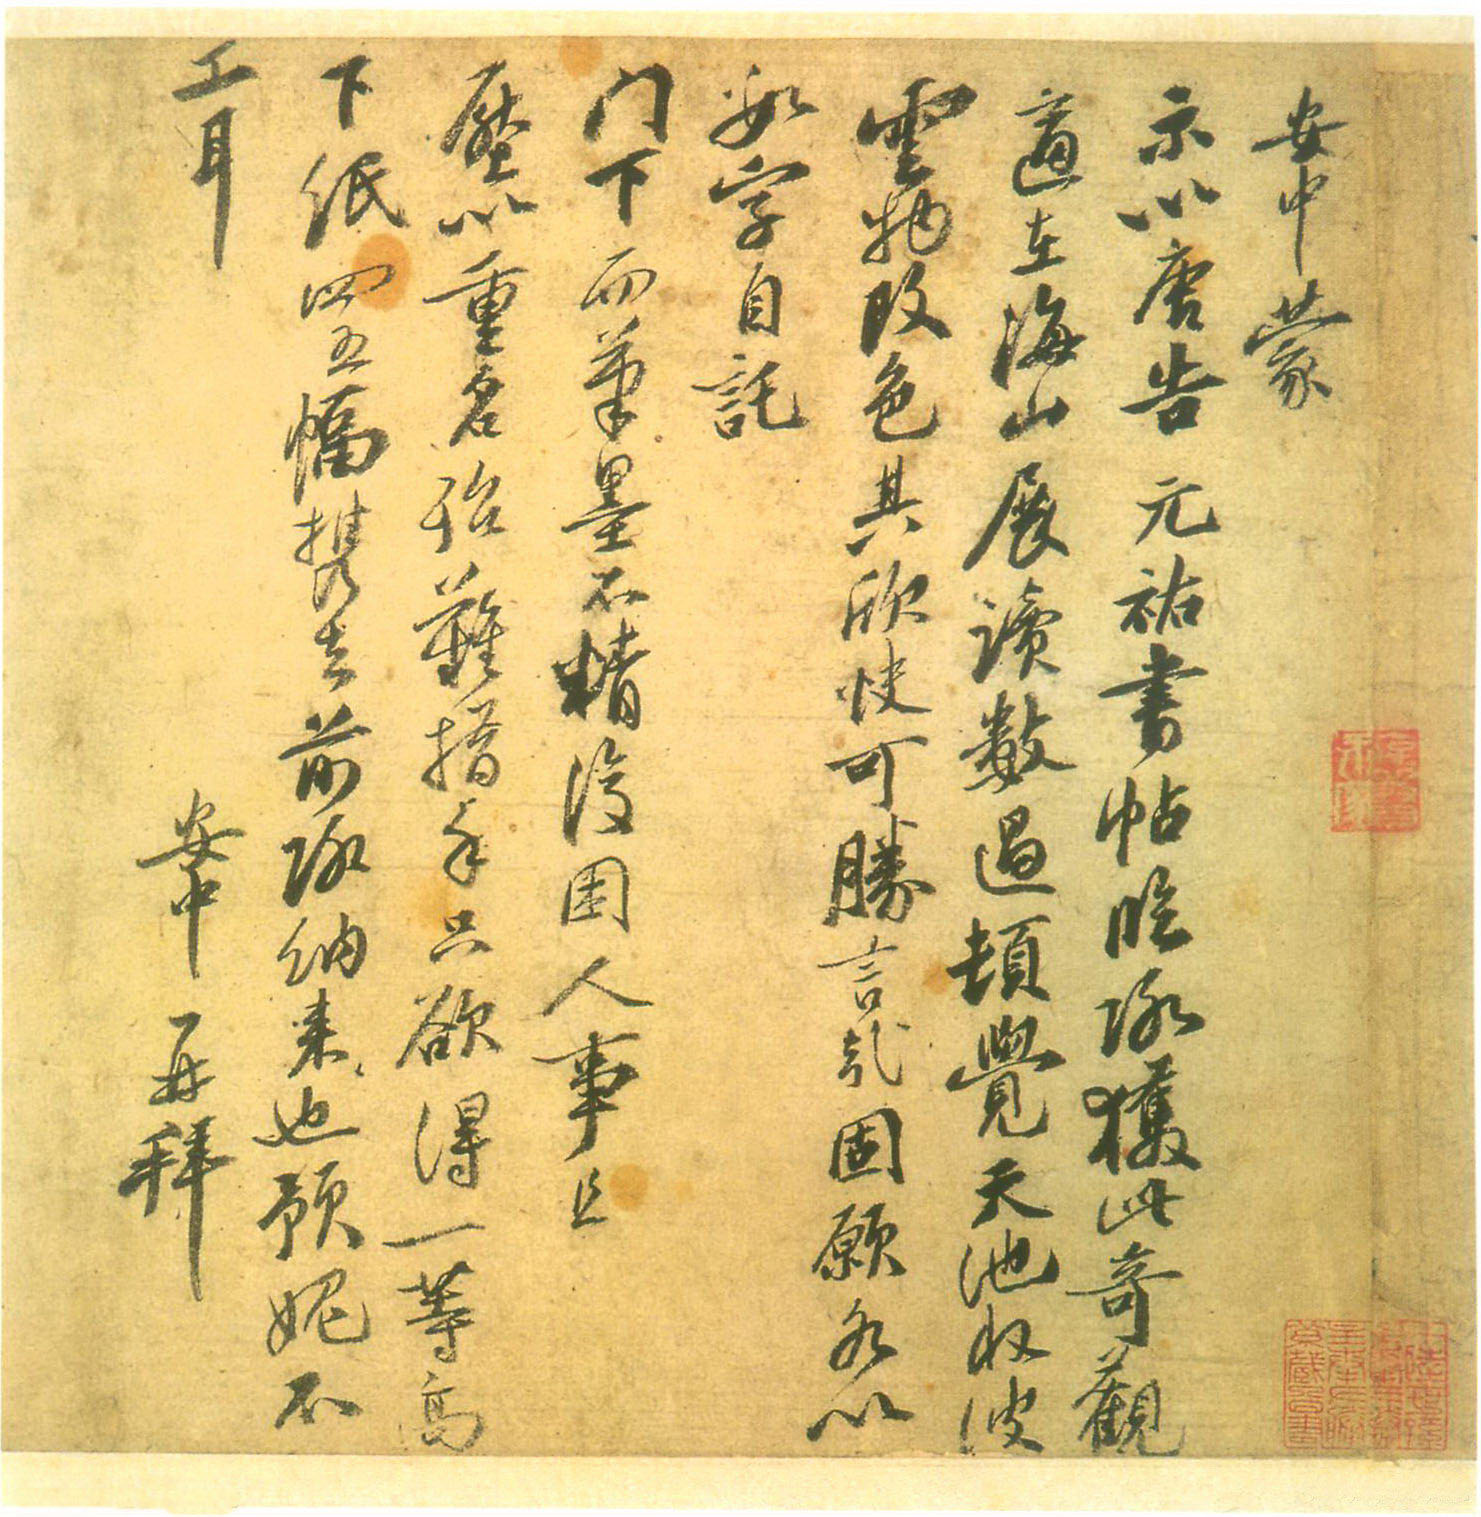 安中蒙
示以唐告元祐書帖臨訟獲此奇觀
適在海山展讀數過頓覺天池收波
雲物改色其欣快可勝言哉固願名以
數字自託
门下而筆墨不精復困人事且
壓以重名殆難措手只欲得一等高
下紙四五幅携去前塗納來也預媿不
工耳
安中再拜